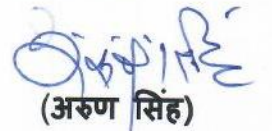 (अरुण सिंह)